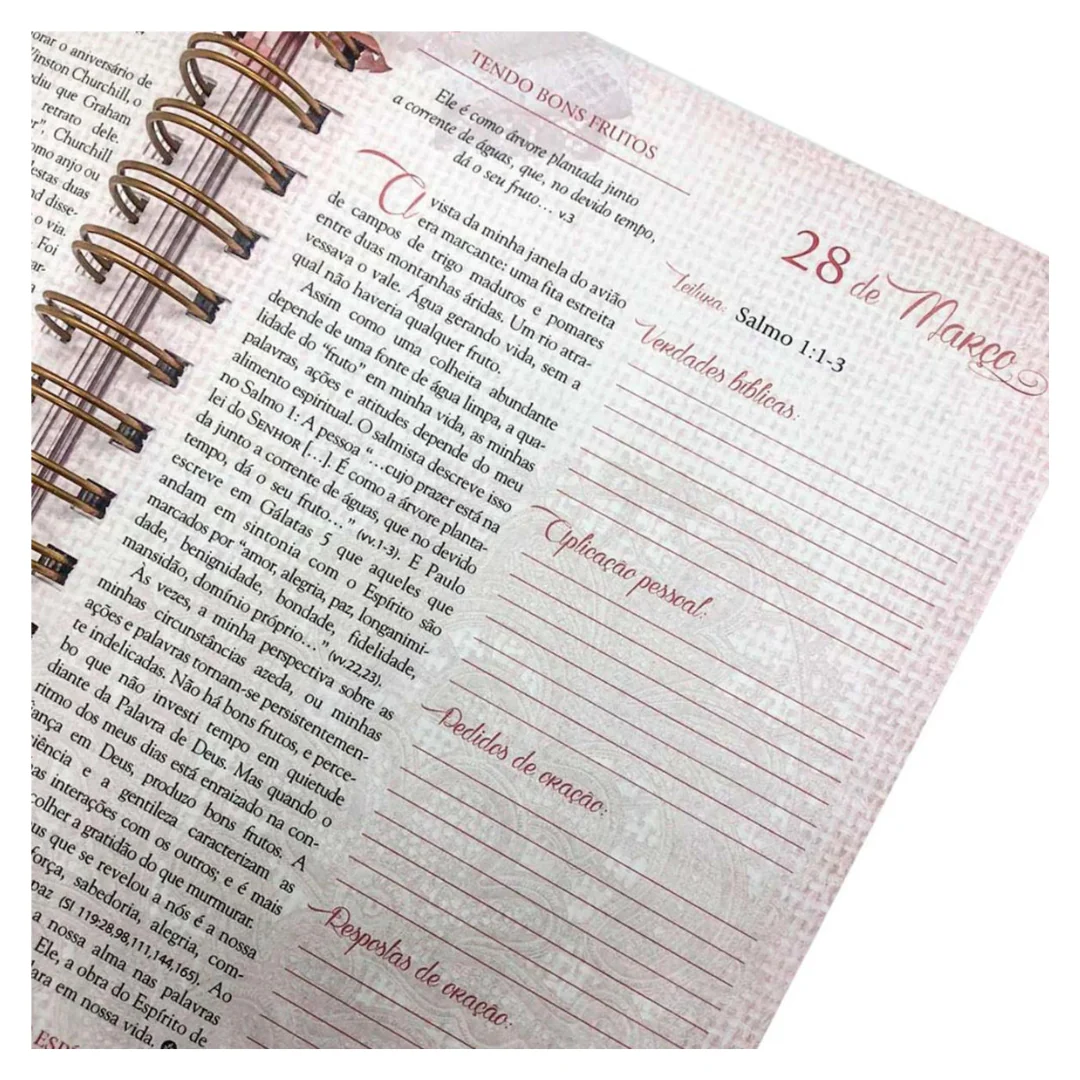 orar o aniversário de
Winston Churchill, o
diu que Graham
retrato dele.
Churchill
omo anjo ou
estas duas
disse-
o via.
Foi
TENDO BONS FRUTOS
Ele é como árvore plantada junto
a corrente de águas, que, no devido tempo,
dá o seu fruto... v.3
A vista da minha janela do avião
era marcante: uma fita estreita
de campos de trigo maduros e pomares
entre duas montanhas áridas. Um rio atra-
vessava o vale. Água gerando vida, sem a
qual não haveria qualquer fruto.
Assim como uma colheita abundante
depende de uma fonte de água limpa, a qua-
lidade do “fruto” em minha vida, as minhas
palavras, ações e atitudes depende do meu
alimento espiritual. O salmista descreve isso
no Salmo 1: A pessoa “...cujo prazer está na
lei do SENHOR [...]. É como a árvore planta-
da junto a corrente de águas, que no devido
tempo, dá o seu fruto...” (vv.1-3). E Paulo
escreve em Gálatas 5 que aqueles que
andam em sintonia com o Espírito são
marcados por “amor, alegria, paz, longanimi-
dade, benignidade, bondade, fidelidade,
mansidão, domínio próprio...” (vv.22,23).
Às vezes, a minha perspectiva sobre as
minhas circunstâncias azeda, ou minhas
ações e palavras tornam-se persistentemen-
te indelicadas. Não há bons frutos, e perce-
bo que não investi tempo em quietude
diante da Palavra de Deus. Mas quando o
ritmo dos meus dias está enraizado na con-
iança em Deus, produzo bons frutos. A
iência e a gentileza caracterizam as
as interações com os outros; e é mais
colher a gratidão do que murmurar.
us que se revelou a nós é a nossa
força, sabedoria, alegria, com-
paz (Sl 119:28,98,111,144,165). Ao
a nossa alma nas palavras
Ele, a obra do Espírito de
lara em nossa vida.
28 de Março
Leitura: Salmo 1:1-3
Verdades bíblicas:
Aplicação pessoal:
Pedidos de oração:
Respostas de oração: